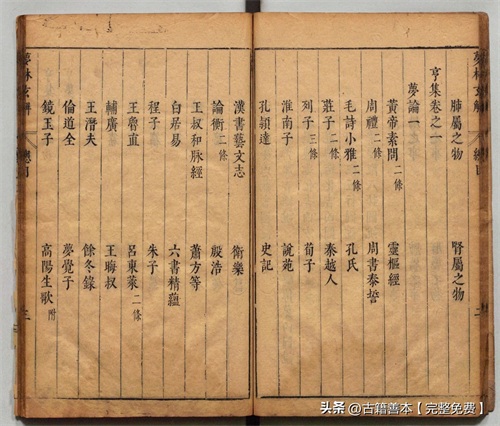 夢林玄解 總目 二
肺屬之物 腎屬之物
亨集卷之一
夢論一
黃帝素問二條 靈樞經
周禮二條 周書泰誓
毛詩小雅二條 孔氏
莊子二條 秦越人
列子三條 荀子
淮南子 說苑
孔穎達 史記
漢書藝文志 衛樂
論衡二條 殷浩
王叔和脉經 蕭方等
白居易 六書精蘊
程子 朱子
王魯直 呂東萊二條
輔廣 王晦叔
王潛夫 餘冬錄
倫道全 夢覺子
鏡玉子 高陽生歌附
夢林玄解 總目 三
头条 @古籍善本【完整免费】